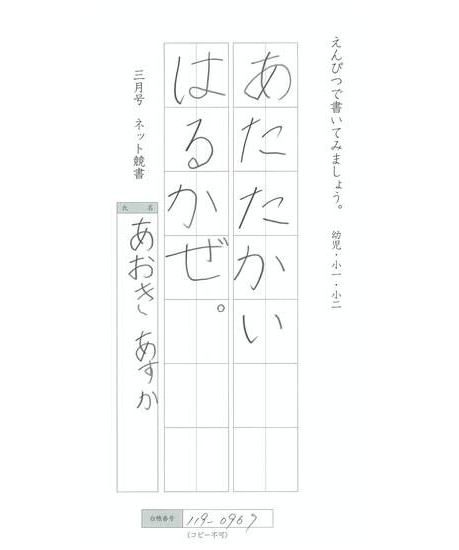 えんぴつで書いてみましょう。 幼児・小一・小二
あたたかい
はるかぜ。
三月号 ネット競書
氏名
あおき あすか
台帳番号 119-0967
(コピー不可)